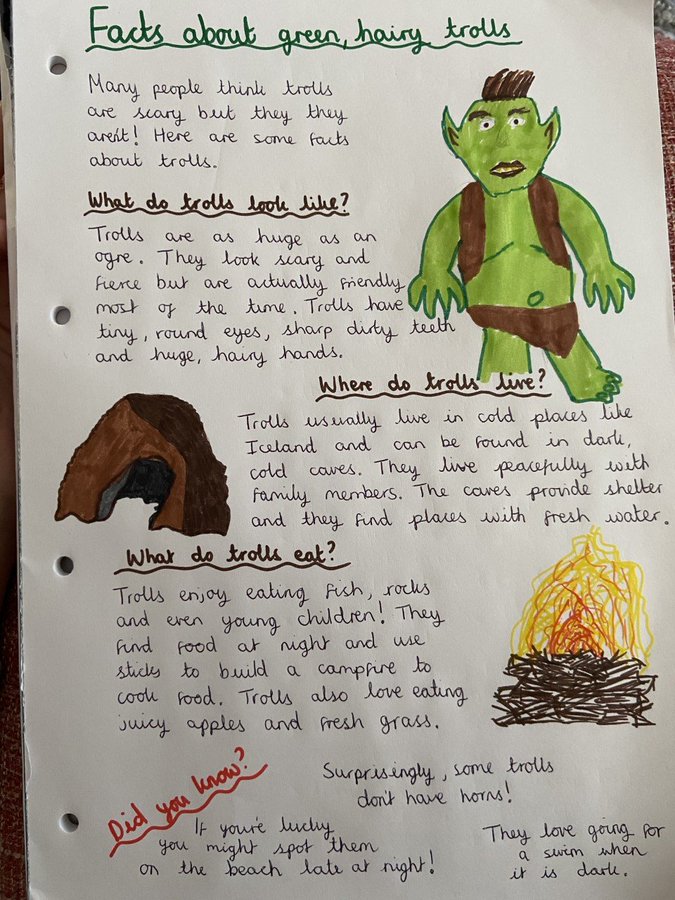 Facts about green, hairy trolls
Many people think trolls
are scary but they they
aren't! Here are some facts
about trolls.
What do trolls look like?
Trolls are as huge as an
ogre. They look scary and
fierce but are actually friendly
most of the time. Trolls have
tiny, round eyes, sharp dirty teeth
and huge, hairy hands.
Where do trolls live?
Trolls usually live in cold places like
Iceland and can be found in dark,
cold caves. They live peacefully with
family members. The caves provide shelter
and they find places with fresh water.
What do trolls eat?
Trolls enjoy eating fish, rocks
and even young children! They
find food at night and use
sticks to build a campfire to
cook food. Trolls also love eating
juicy apples and fresh grass.
Did you know?
Surprisingly, some trolls
don't have horns!
If you're lucky
you might spot them
on the beach late at night!
They love going for
a swim when
it is dark.